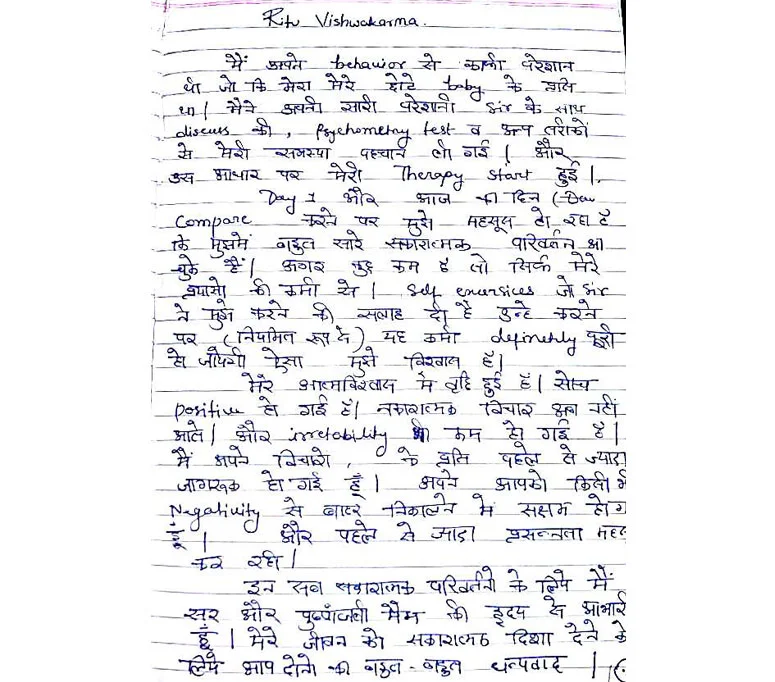 Ritu Vishwakarma.
मैं अपने behavior से काफी परेशान
थी जो कि मेरा मेरे छोटे baby के प्रति
था। मैंने अपनी सारी परेशानी Sir के साथ
discuss की, Psychometry test व अन्य तरीकों
से मेरी समस्या पहचान ली गई। और
उस आधार पर मेरी Therapy start हुई।
Day 1 और आज का दिन (-Day
Compare करने पर मुझे महसूस हो रहा है
कि मुझमें बहुत सारे सकारात्मक परिवर्तन आ
चुके हैं। अगर कुछ कम है तो सिर्फ मेरे
प्रयासो की कमी से। Self exercises जो Sir
ने मुझे करने की सलाह दी है उन्हे करने
पर (नियमित रूप से) यह कमी definetly पूरी
हो जायेगी ऐसा मुझे विश्वास है।
मेरे आत्मविश्वास में वृद्दि हुई है। सोच
positive हो गई है। नकारात्मक विचार अब नहीं
आते। और irretability भी कम हो गई है।
मैं अपने विचारो, के प्रति पहले से ज्यादा
जागरूक हो गई हूँ। अपने आपको किसी भी
Negativity से बाहर निकालने में सक्षम हो ग
हूँ। और पहले से जादा प्रसन्नता महसू
कर रही।
इन सब सकारात्मक परिवर्तनो के लिये मैं
सर और पुष्पांजली मैम की हृदय से आभारी
हूँ। मेरे जीवन को सकारात्मक दिशा देने के
लिये आप दोनो का बहुत-बहुत धन्यवाद।